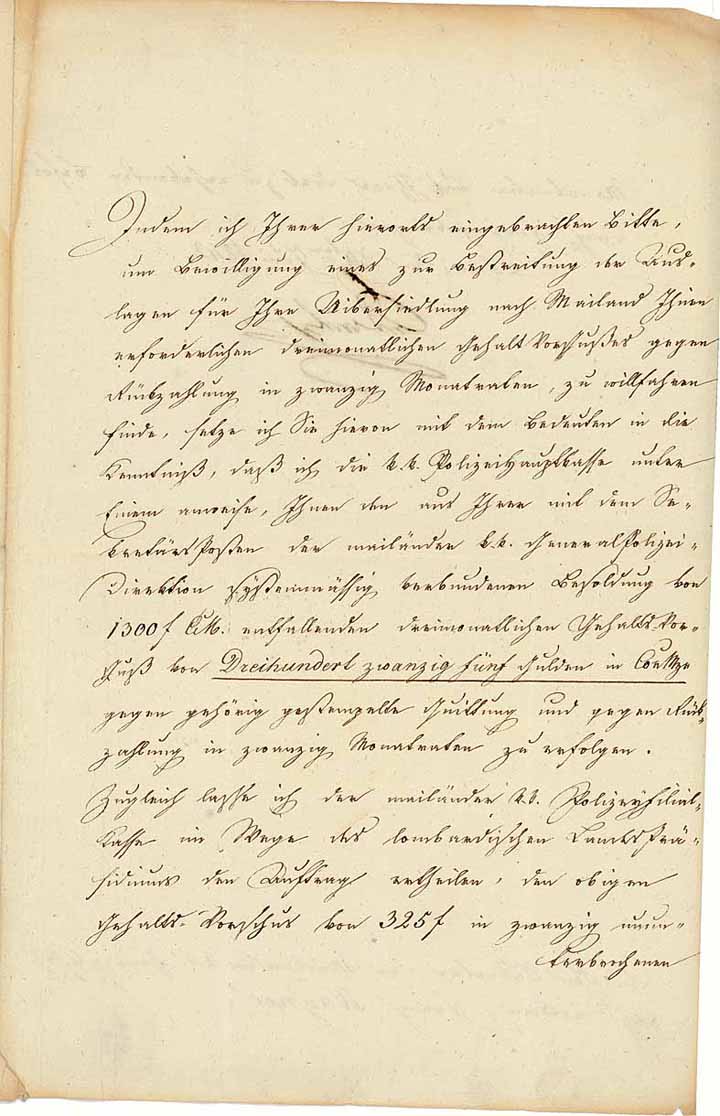 Indem ich Ihrer hierorts eingebrachten Bitte,
um Bewilligung eines zur Bestreitung der Aus-
lagen für Ihre Uibersiedlung nach Mailand Ihnen
erforderlichen dreimonatlichen Gehalt Vorschußes gegen
Rückzahlung in zwanzig Monatraten, zu willfahren
finde, setze ich Sie hievon mit dem Bedeuten in die
Kenntniß, daß ich die k.k. PolizeiHauptkasse unter
Einem anweise, Ihnen den aus Ihrer mit dem Se-
kretärsPosten der mailänder k.k. GeneralPolizei-
Direktion systemmässig verbundenen Besoldung von
1300 f CM. entfallenden dreimonatlichen Gehalts-Vor-
schuß von Dreihundert zwanzig fünf Gulden in ConMze
gegen gehörig gestempelte Quittung und gegen Rük-
zahlung in zwanzig Monatraten zu erfolgen.
Zugleich lasse ich der mailänder k.k. PolizeyFilial-
Kasse im Wege des lombardischen LandesPrä-
sidiums den Auftrag ertheilen, den obigen
Gehalts-Vorschus von 325 f in zwanzig unun-
terbrochenen